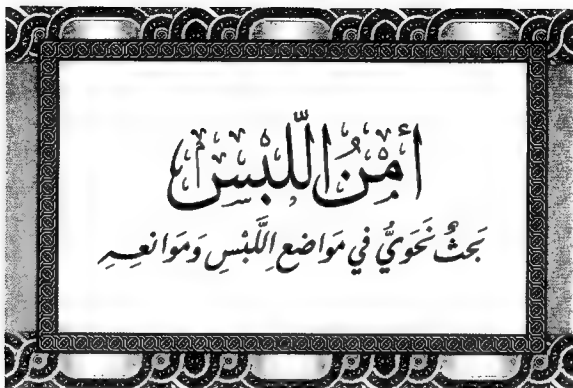 أَمْنُ اللَّبْسِ
بَحثٌ نَحَوِيٌّ في مَوَاضعِ اللَّبْسِ وَمَوَانعِهِ